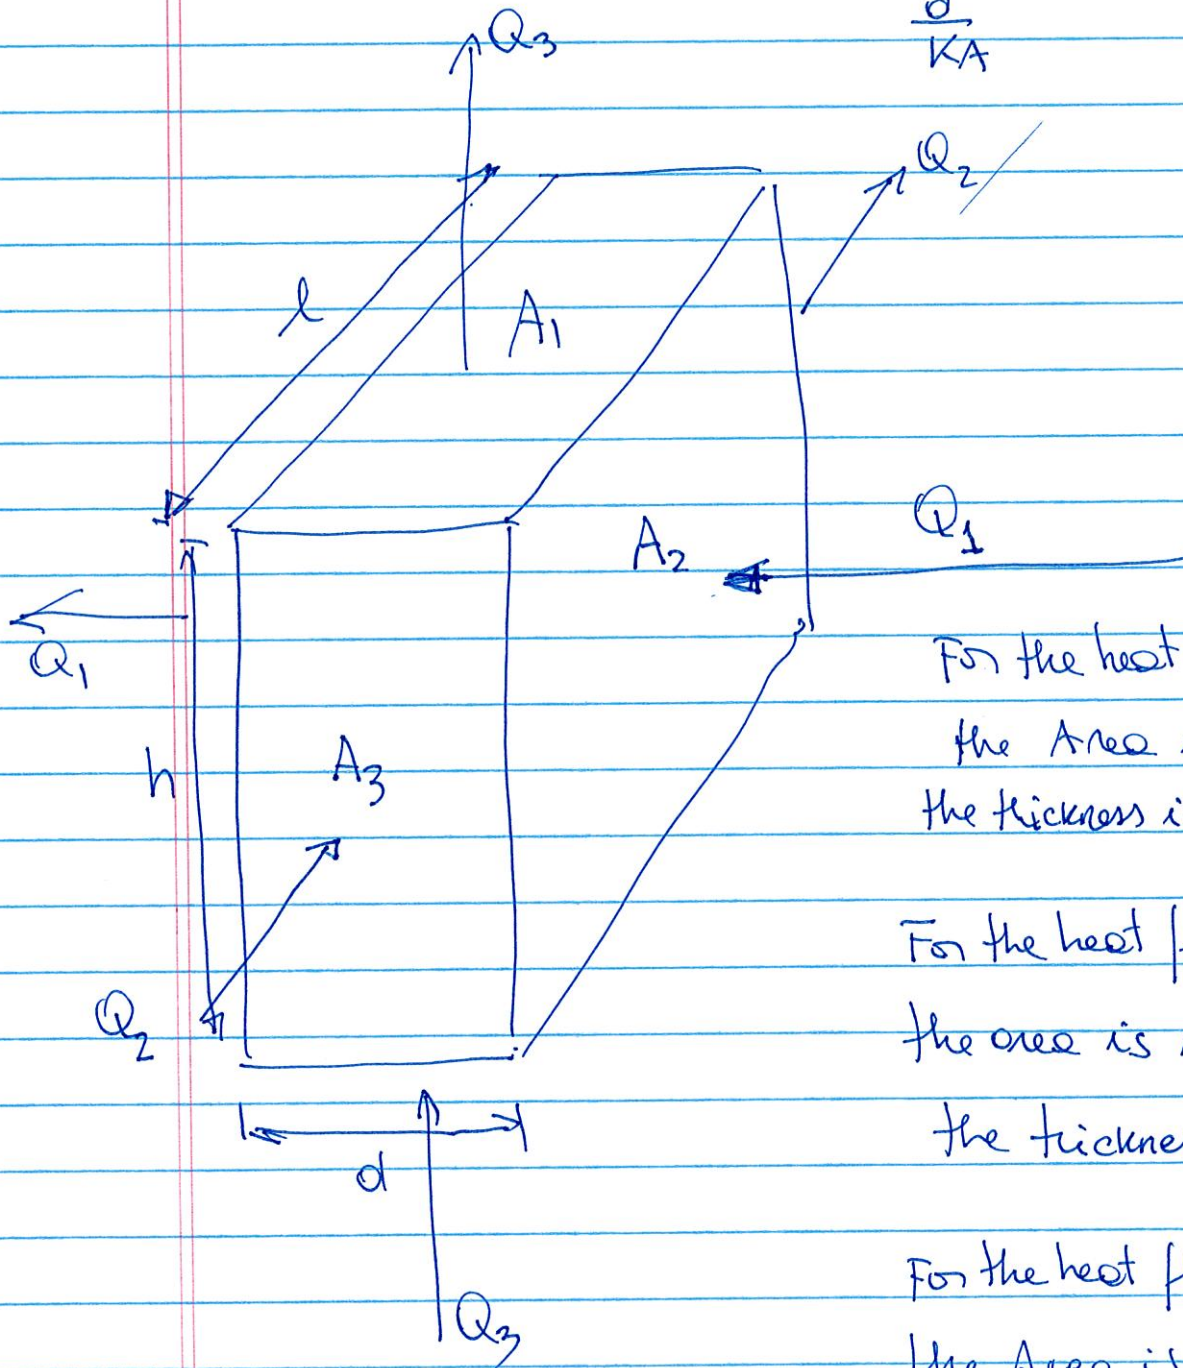 Q3
d
KA
Q2
l
A1
Q1
A2
Q1
For the heat
the Area
h
A3
the thickness i
For the heat f
Q2
the area is
the thickne
d
For the heat f
Q3
the Area i